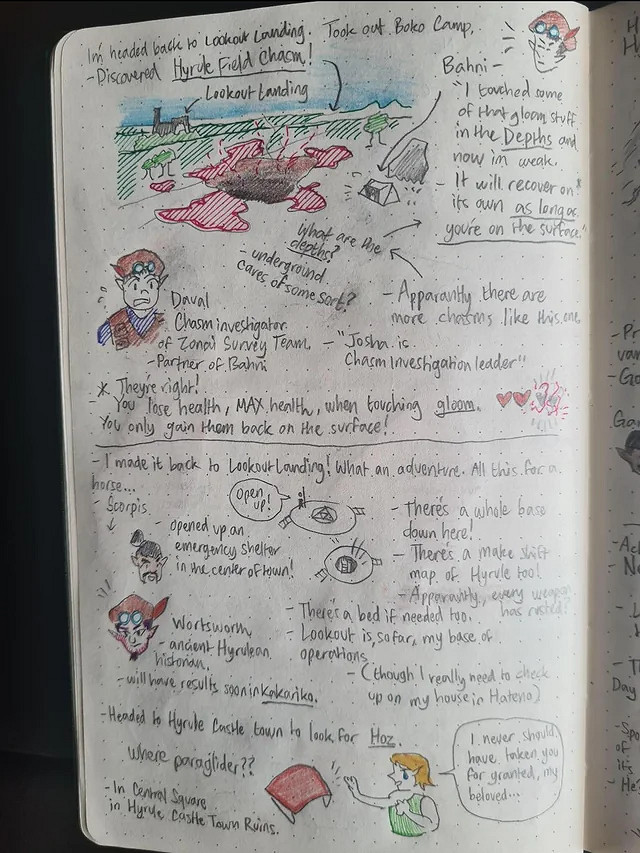 I'm headed back to Lookout Landing. Took out Boko Camp.
- Discovered Hyrule Field Chasm!
Lookout Landing
Bahni -
"I touched some
of that gloom stuff
in the Depths and
now im weak.
- It will recover on
its own as long as
you're on the surface."
What are the
depths?
- underground
caves of some sort?
- Apparantly there are
more chasms like this one
Daval
Chasm investigator
of Zonai Survey Team
- Partner of Bahni
- "Josha is
Chasm Investigation leader"
* They're right!
- You lose health, MAX health, when touching gloom.
You only gain them back on the surface!
- I made it back to Lookout Landing! What an adventure. All this for a
horse...
- Scorpis
- opened up an
emergency shelter
in the center of town!
Open
up!
- There's a whole base
down here!
- There's a make shift
map of Hyrule too!
- Apparantly, every weapon
has rusted!
Wortsworth,
- ancient Hyrulean
historian,
- will have results soon in Kakariko.
- There's a bed if needed too.
- Lookout is, so far, my base of
operations
- (though I really need to check
up on my house in Hateno)
- Headed to Hyrule Castle town to look for Hoz.
where paraglider??
- In Central Square
in Hyrule Castle Town Ruins.
I never should
have taken you
for granted, my
beloved...